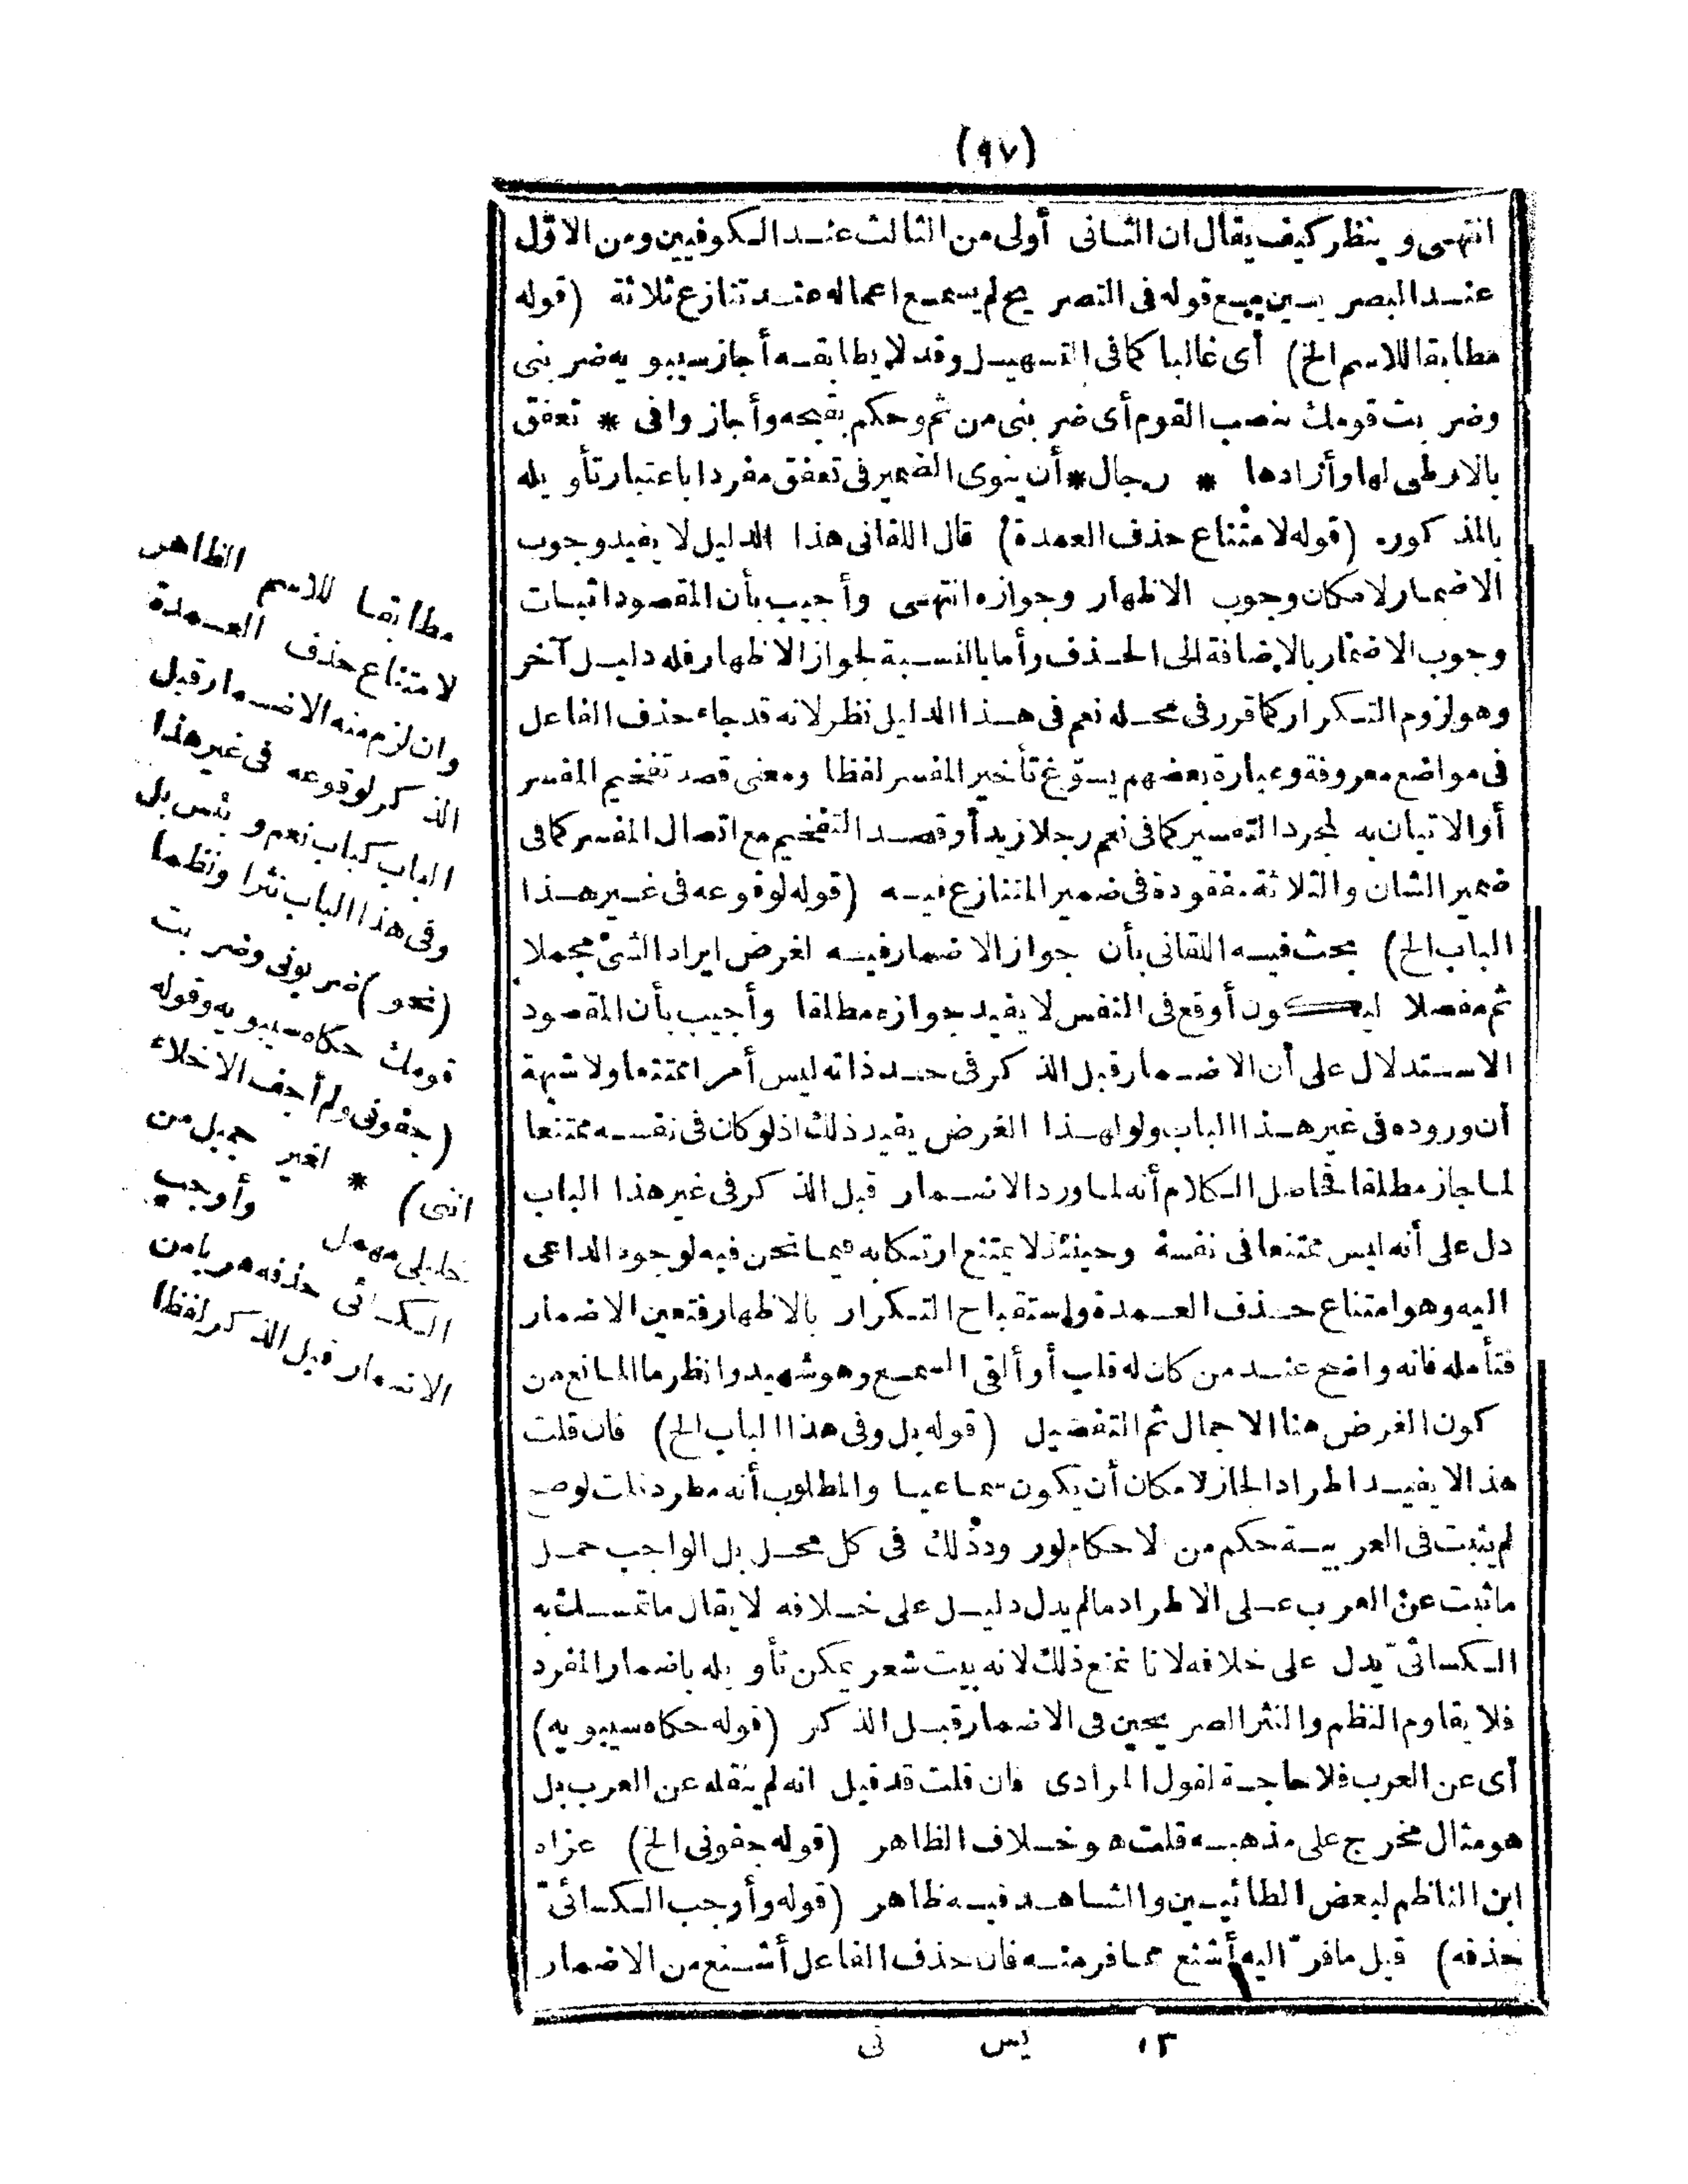 (٩٧)
انتهى وينظر كيف يقال ان الثانى أولى من الثالث عند الكوفيين ومن الاوّل
عند البصريين مع قوله فى التصريح لم يسمع اعماله عند تنازع ثلاثة (قوله
مطابقا للاسم الخ) أى غالبا كما فى التسهيل وقد لا يطابقه أجاز سيبويه ضربنى
وضربت قومك بنصب القوم أى ضربنى من ثم وحكم بقبحه وأجاز وافى * تعفق
بالارطى لها وأرادها * رجال * أن ينوى الضمير فى تعفق مفردا باعتبار تأويله
بالمذكور (قوله لامتناع حذف العمدة) قال اللقانى هذا الدليل لا يفيد وجوب
الاضمار لامكان وجوب الاظهار وجوازه انتهى وأجيب بأن المقصود اثبات
وجوب الاضمار بالاضافة الى الحذف وأما بالنسبة لجواز الاظهار فله دليل آخر
وهو لزوم التكرار كما قرر فى محله نعم فى هذا الدليل نظر لانه قد جاء حذف الفاعل
فى مواضع معروفة وعبارة بعضهم يسوّغ تأخير المفسر لفظا ومعنى قصد تفخيم المفسر
أو الاتيان به لمجرد التفسير كما فى نعم رجلا زيد أو قصد التفخيم مع اتصال المفسر كما فى
ضمير الشان والثلاثة مفقودة فى ضمير المتنازع فيه (قوله لوقوعه فى غير هذا
الباب الخ) بحث فيه اللقانى بأن جواز الاضمار فيه لغرض ايراد الشئ مجملا
ثم مفصلا ليكون أوقع فى النفس لا يفيد جوازه مطلقا وأجيب بأن المقصود
الاستدلال على أن الاضمار قبل الذكر فى حد ذاته ليس أمرا ممتنعا ولا شبهة
أن وروده فى غير هذا الباب ولو لهذا الغرض يفيد ذلك اذ لو كان فى نفسه ممتنعا
لما جاز مطلقا فحاصل الكلام أنه لما ورد الاضمار قبل الذكر فى غير هذا الباب
دل على أنه ليس ممتنعا فى نفسه وحينئذ لا يمتنع ارتكابه فيما نحن فيه لوجود الداعى
اليه وهو امتناع حذف العمدة واستقباح التكرار بالاظهار فتعين الاضمار
فتأمله فانه واضح عند من كان له قلب أو ألقى السمع وهو شهيد وانظر ما المانع من
كون الغرض هنا الاجمال ثم التفصيل (قوله بل وفى هذا الباب الخ) فان قلت
هذا لا يفيد اطراد الجاز لامكان أن يكون سماعيا والمطلوب أنه مطرد قلت لو صح
لم يثبت فى العربية حكم من لاحكام لور ود ذلك فى كل محل بل الواجب حمل
ما ثبت عن العرب على الاطراد ما لم يدل دليل على خلافه لا يقال ما تمسك به
الكسائىّ يدل على خلافه لانا نمنع ذلك لانه بيت شعر يمكن تأويله باضمار المفرد
فلا يقاوم النظم والنثر الصريحين فى الاضمار قبل الذكر (قوله حكاه سيبويه)
أى عن العرب فلا حاجة لقول المرادى فان قلت قد قيل انه لم ينقله عن العرب بل
هو مثال مخرج على مذهبه قلت هو خلاف الظاهر (قوله جفونى الخ) عزاه
ابن الناظم لبعض الطائيين والشاهد فيه ظاهر (قوله وأوجب الكسائىّ
حذفه) قيل ما فرّ اليه أشنع مما فر منه فان حذف الفاعل أشنع من الاضمار
مطابقا للاسم الظاهر
لامتناع حذف العمدة
وان لزم منه الاضمار قبل
الذكر لوقوعه فى غير هذا
الباب كباب نعم وبئس بل
وفى هذا الباب نثرا ونظما
(نحو) ضربونى وضربت
قومك حكاه سيبويه وقوله
(جفونى ولم أجف الاخلاء
اننى) * لغير جميل من
خليلى مهمل وأوجب
الكسائى حذفه هربا من
الاضمار قبل الذكر لفظا
١٣ يس نى